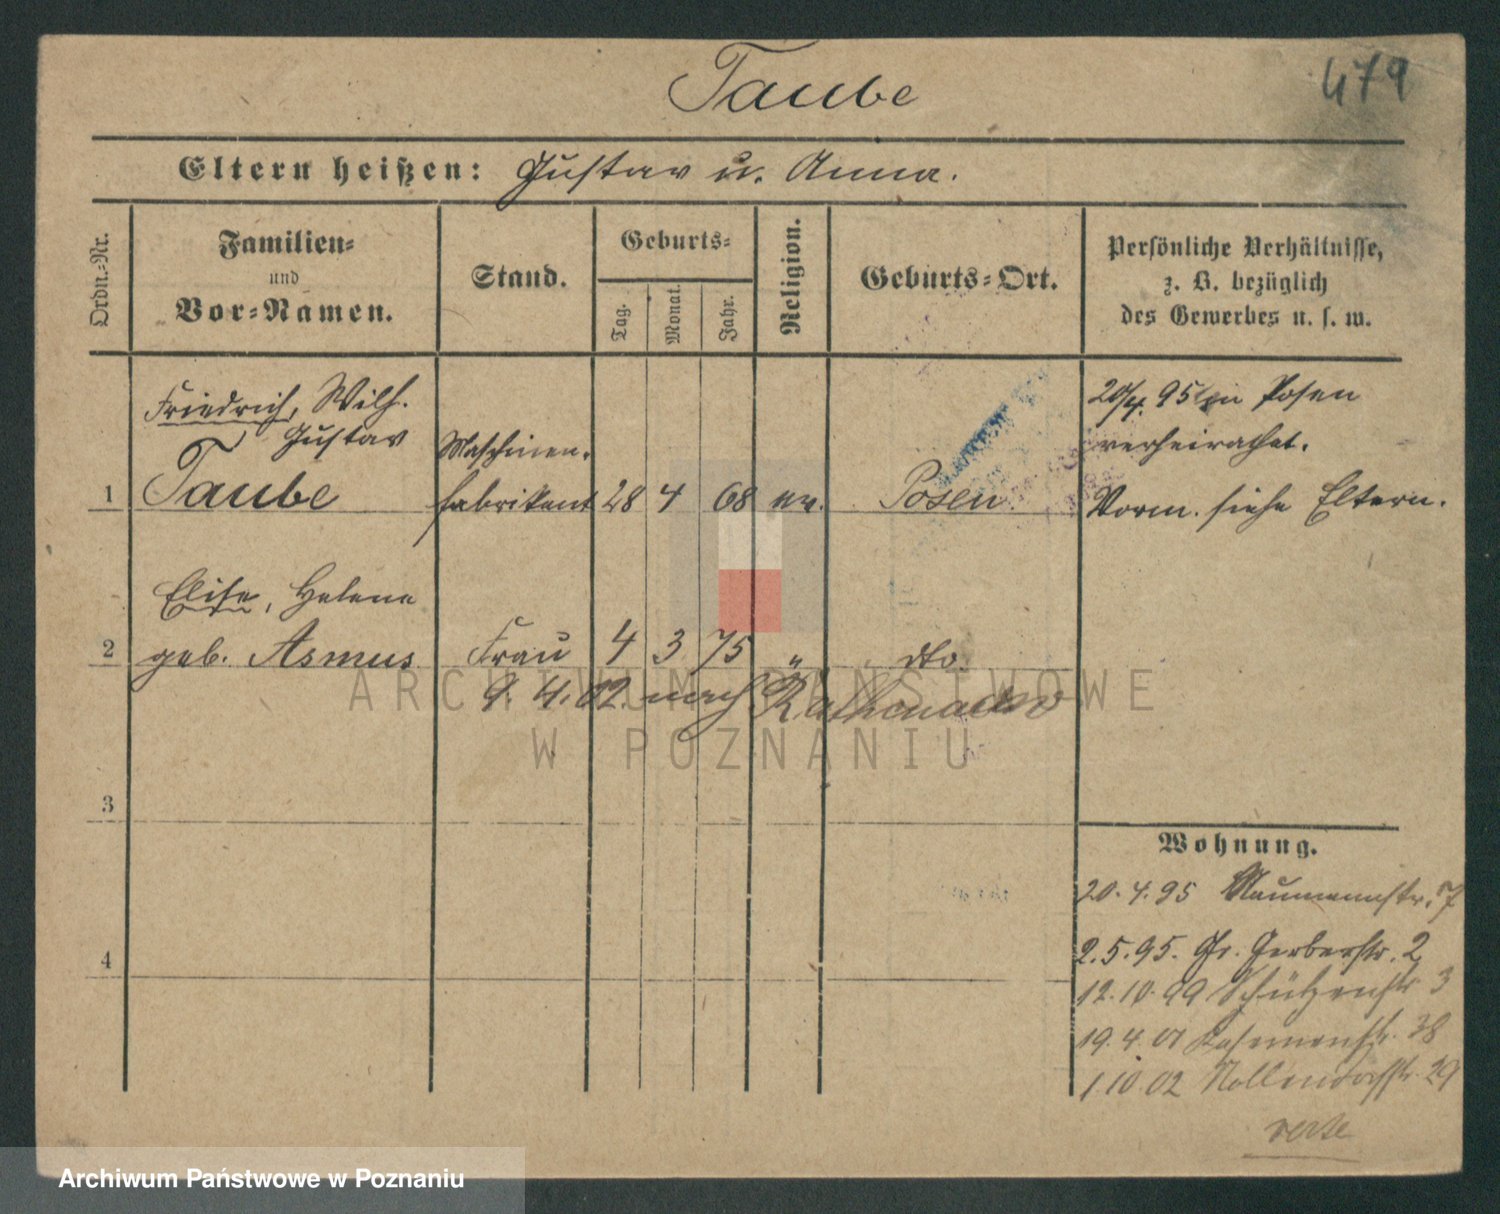 Taube
479
Eltern heißen: Gustav u. Anna.
Ordn.-Nr.
Familien- und Vor-Namen.
Stand.
Geburts-
Tag.
Monat.
Jahr.
Religion.
Geburts-Ort.
Persönliche Verhältnisse,
z. B. bezüglich
des Gewerbes u. s. w.
Friedrich, Wilh.
Gustav
1 Taube Maschinen-
fabrikant 28 4 68 ev. Posen
20/4. 95 in Posen
verheirathet.
Vorm. siehe Eltern.
Elise, Helene
2 geb. Asmus Frau 4 3 75 " dto.
9. 4. 02 nach Rathenow
ARCHIWUM PAŃSTWOWE
W POZNANIU
3
4
Wohnung.
20. 4. 95 Naumannstr. 7
2. 5. 95. Gr. Gerberstr. 2
12. 10. 99 Schützenstr 3
19. 4. 01 38
1. 10 02 Nollendorfstr. 29
verte
Archiwum Państwowe w Poznaniu